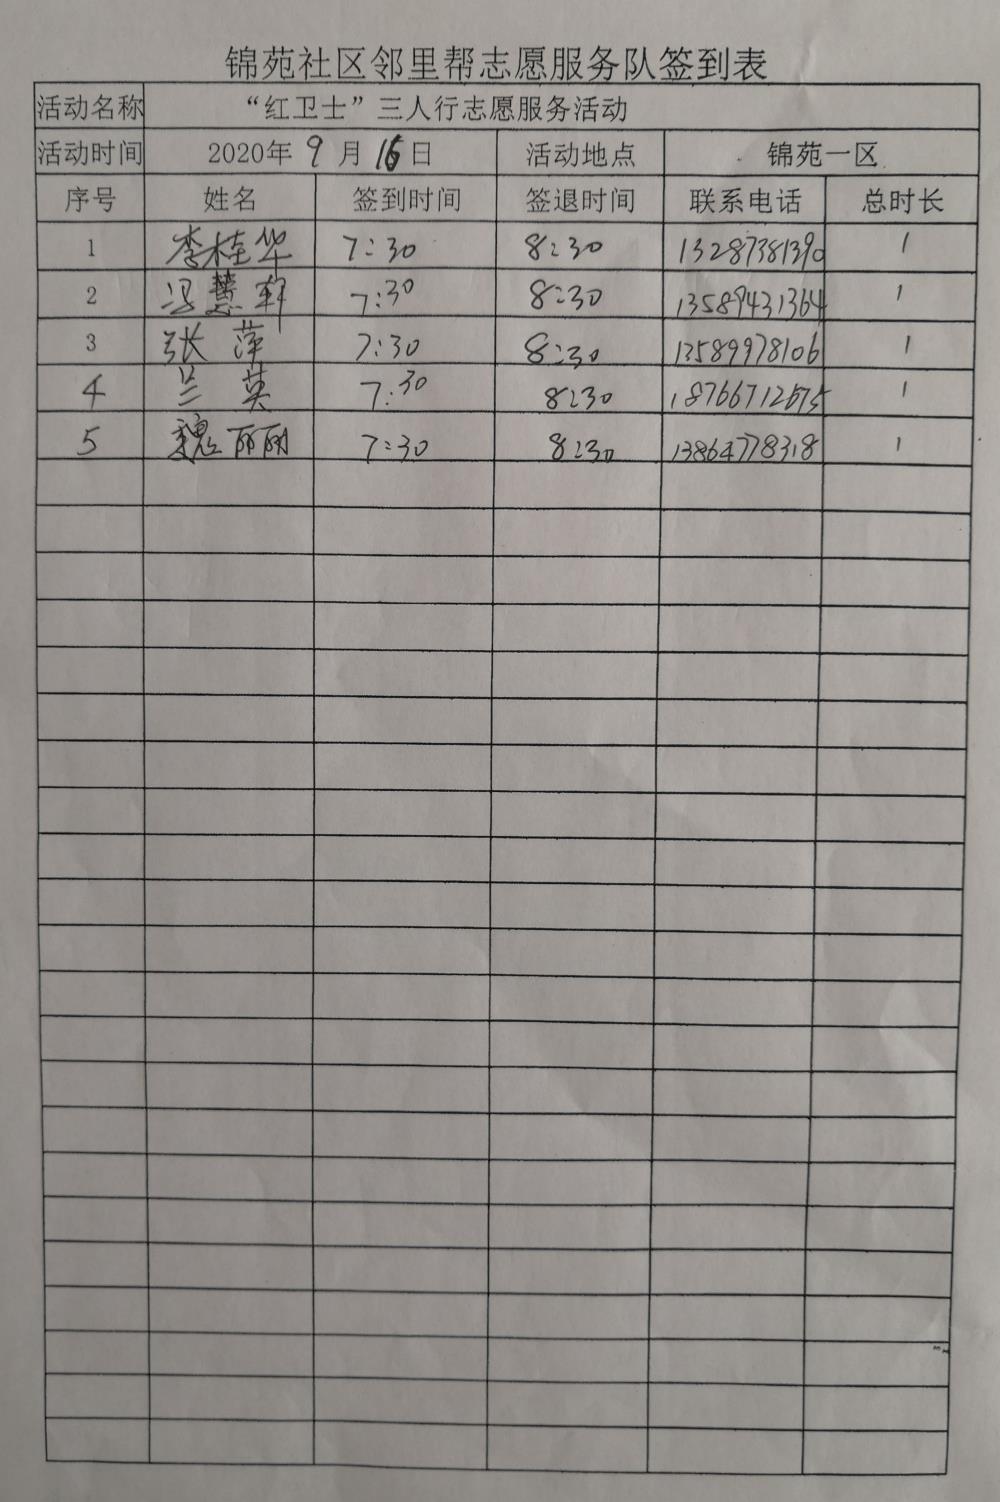 锦苑社区邻里帮志愿服务队签到表
活动名称 “红卫士”三人行志愿服务活动
活动时间 2020年 9 月 16 日 活动地点 锦苑一区
序号 姓名 签到时间 签退时间 联系电话 总时长
1 李桂华 7:30 8:30 13287381390 1
2 冯慧轩 7:30 8:30 13589431364 1
3 张萍 7:30 8:30 13589978106 1
4 兰英 7:30 8:30 1
5 魏丽丽 7:30 8:30 13864778318 1